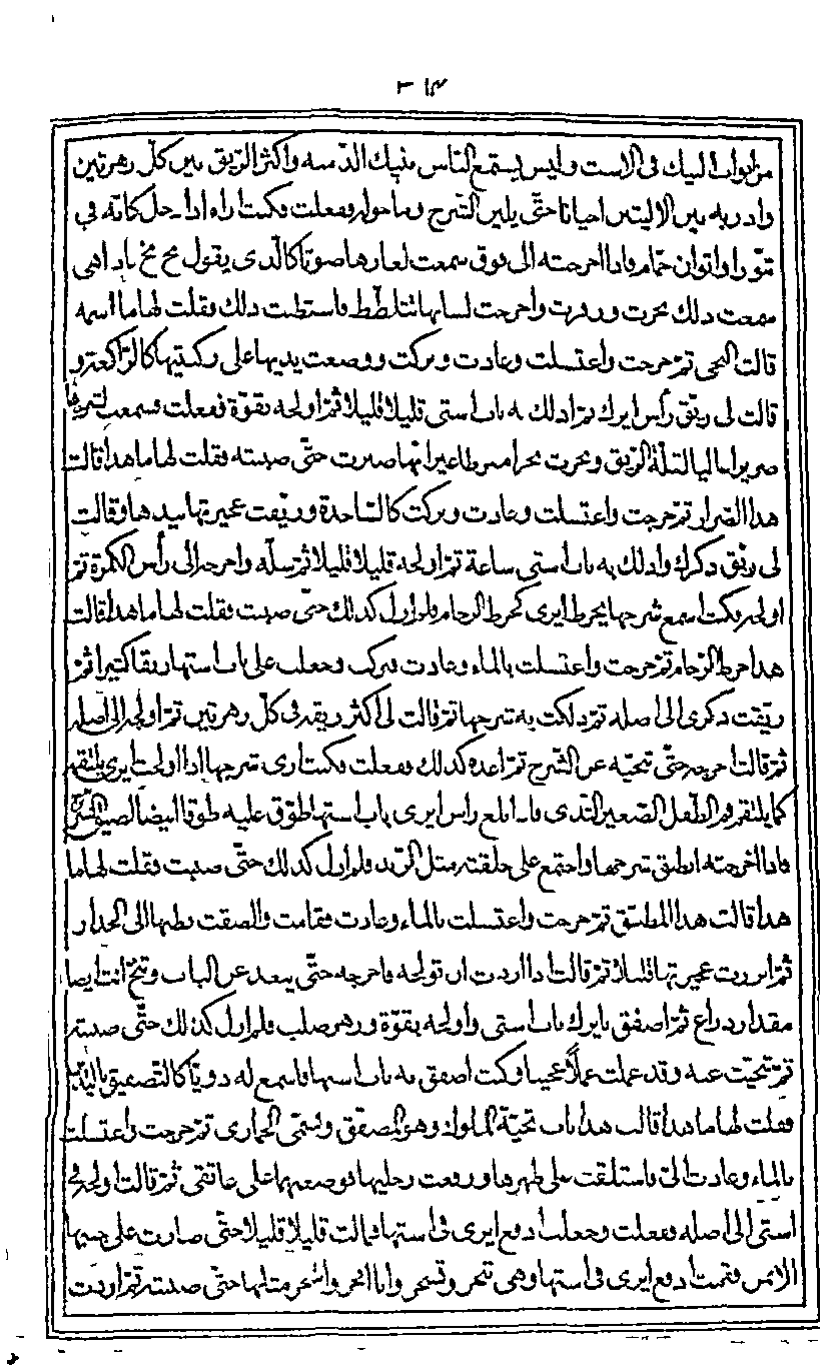 ٣١٤
من ابواب النيك فى الاست وليس يستمع الناس بنيك الذ منه واكثر الريق بين كل رهزتين
وادر به بين الاليتين احيانا حتّى يلين الشرج وما حوله ففعلت فكنت اراه اذا دخل كانّه فى
تنّور او اتون حمّام فاذا اخرجته الى فوق سمعت لغارها صوتا كالّذى يقول مخ مخ باد اهى
سمعت ذلك نخرت وزفرت واخرجت لسانها تتلمّظ فاستطبت ذلك فقلت لها ما اسمه
قالت المخى ثمّ خرجت واغتسلت وعادت وبركت ووضعت يديها على ركبتيها كالرّاكعة و
قالت لى ريّق رأس ايرك ثم ادلك به باب استى قليلا قليلا ثمّ اولجه بقوّة ففعلت فسمعت لشرجها
صريرا لقلّة الريق ونخرت نخرا مفرطا غير انّها صبرت حتّى صببته فقلت لها ما هذا قالت
هذا الصرّار ثمّ خرجت واغتسلت وعادت وبركت كالسّاجدة وريّقت عجيزتها بيدها وقالت
لى ريّق ذكرك وادلك به باب استى ساعة ثمّ اولجه قليلا قليلا ثمّ سلّه واخرجه الى رأس الكمرة ثمّ
اولجه فكنت اسمع شرجها يخرط ايرى كخرط الرخام فلم ازل كذلك حتّى صببت فقلت لها ما هذا قالت
هذا خرط الرّخام ثمّ خرجت واغتسلت بالماء وعادت فبركت وجعلت على باب استها ريقا كثيرا ثمّ
ريّقت ذكرى الى اصله ثمّ دلكت به شرجها ثمّ قالت لى اكثر ريقه فى كلّ رهزتين ثمّ اولجه الى اصله
ثمّ قالت اخرجه حتّى تنحّيه عن الشرج ثمّ اعده كذلك ففعلت فكنت ارى شرجها اذا اولجت ايرى يلتقمه
كما يلتقم فم الطّفل الصّغير الثدى فاذا بلع رأس ايرى باب استها طوّق عليه طوقا ايضا لضيق الشرج
فاذا اخرجته انطبق شرجها واجتمع على حلقته مثل الزبد فلم ازل كذلك حتّى صببت فقلت لها ما
هذا قالت هذا المطبّق ثمّ خرجت واغتسلت بالماء وعادت فقامت والصقت بطنها الى الجدار
ثمّ ابرزت عجيزتها قليلا ثمّ قالت اذا اردت ان تولجه فاخرجه حتّى يبعد عن الباب وتنحّ انت ايضا
مقدار ذراع ثمّ اصفق بايرك باب استى واولجه بقوّة ورهز صلب فلم ازل كذلك حتّى صببته
ثمّ تنحّيت عنه وقد عملت عملا عجيبا وكنت اصفق به باب استها فاسمع له دويّا كالتّصفيق باليد
فقلت لها ما هذا قالت هذا باب تحيّة الملوك وهو المصفّق ويسمّى الحمارى ثمّ خرجت واغتسلت
بالماء وعادت الىّ فاستلقت على ظهرها ورفعت رجليها فوضعتهما على عاتقى ثمّ قالت اولجه فى
استى الى اصله ففعلت وجعلت ادفع ايرى فى استها فمالت قليلا قليلا حتّى صارت على جنبها
الايمن فقمت ادفع ايرى فى استها وهى تنخر وتشخر وانا انخر واشخر مثلها حتّى صببته ثمّ اردت